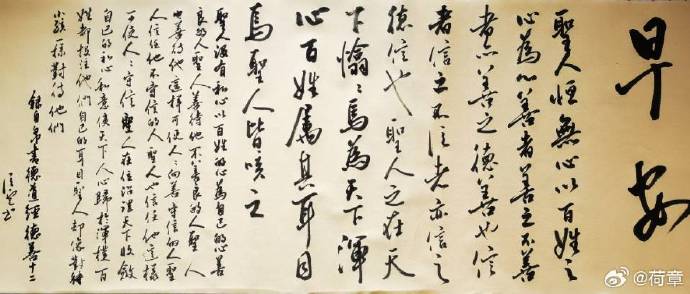 早安
聖人恒無心以百姓之
心為心善者善之不善
者亦善之德善也信
者信之不信者亦信之
德信也聖人之在天
下焉為天下渾
心百姓屬其耳目
焉聖人皆咳之
聖人沒有私心以百姓的心為自己的心善
良的人聖人善待他不善良的人聖人
也善待他這樣可使人〻向善守信的人聖
人信任他不守信的人聖人也信任他這樣
可使人〻守信聖人在位治理天下收斂
自己的私心和意使天下人心歸於渾樸百
姓都投注他們自己的耳目聖人卻像對待
小孩一樣對待他們
錄自帛書德道經德善十二
@荷章